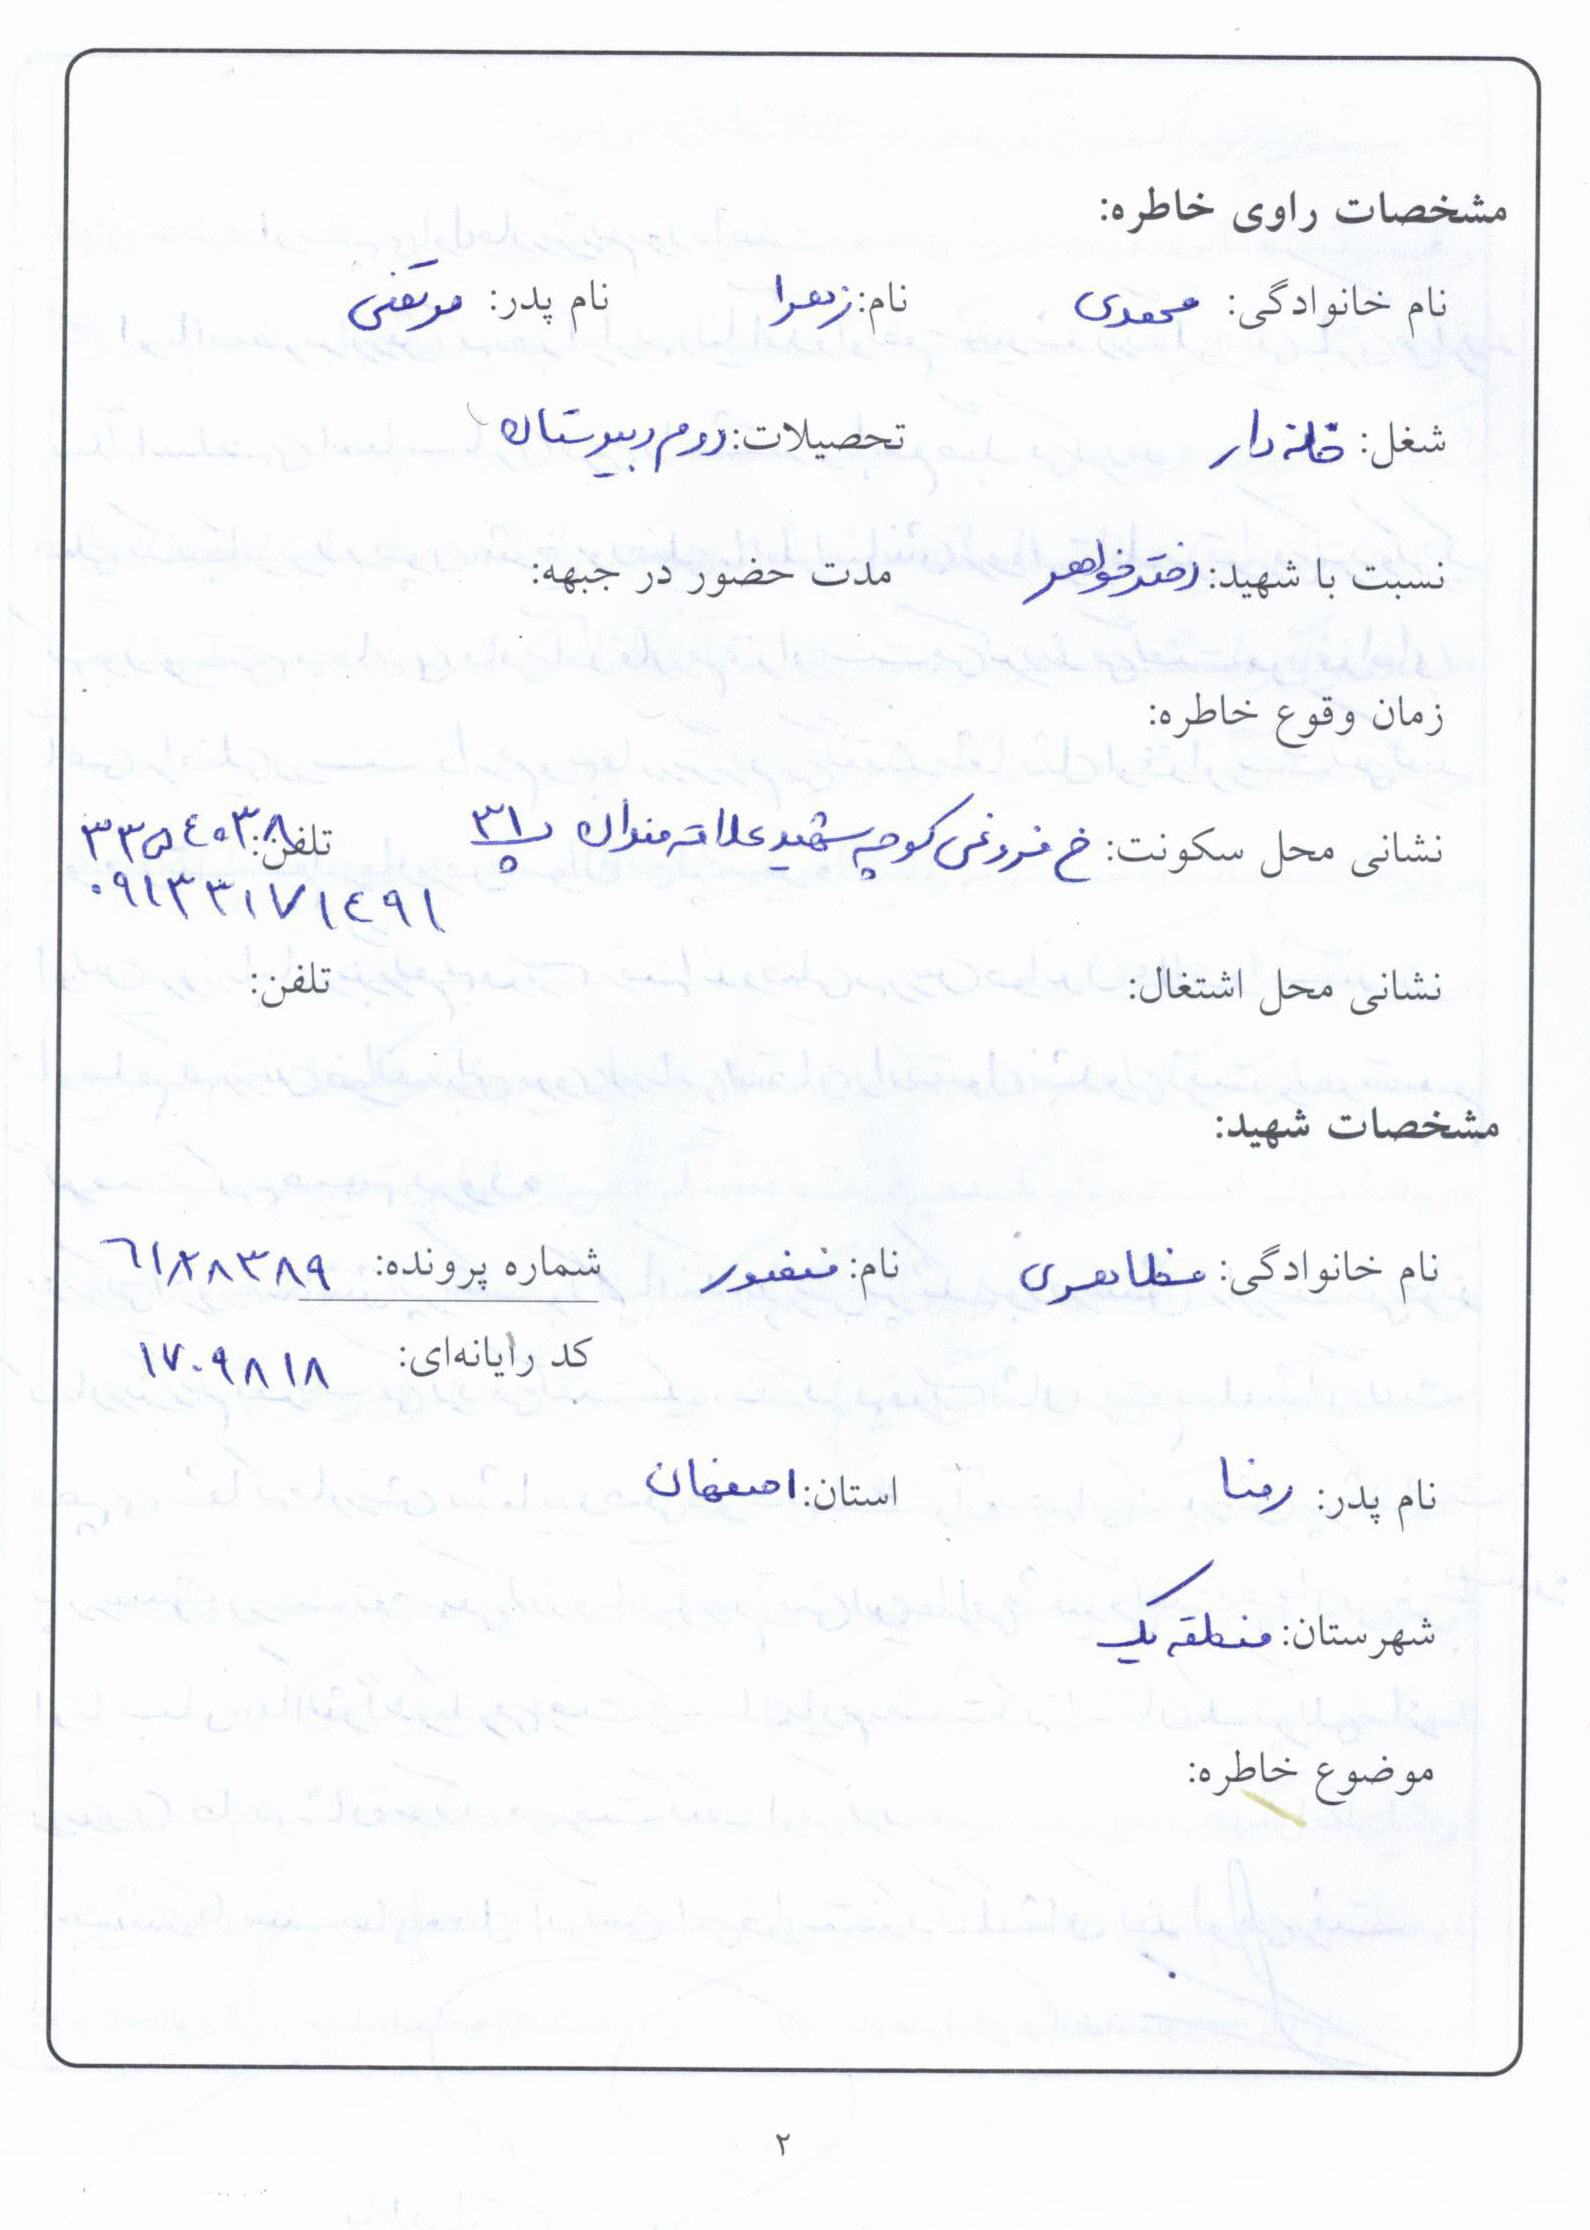 مشخصات راوی خاطره:
نام خانوادگی: محمدی نام: زهرا نام پدر: مرتضی
شغل: خانه دار تحصیلات: دوم دبیرستان
نسبت با شهید: دختر خواهر مدت حضور در جبهه:
زمان وقوع خاطره:
نشانی محل سکونت: خ فروغی کوچه شهید علاقه مندان پ ۳۱ تلفن: ۳۳۵۴۰۳۸
۰۹۱۳۳۱۷۱۴۹۱
نشانی محل اشتغال: تلفن:
مشخصات شهید:
نام خانوادگی: مظاهری نام: غضنفر شماره پرونده: ۶۱۲۸۳۸۹
کد رایانه‌ای: ۱۷۰۹۸۱۸
نام پدر: رضا استان: اصفهان
شهرستان: منطقه یک
موضوع خاطره:
۲